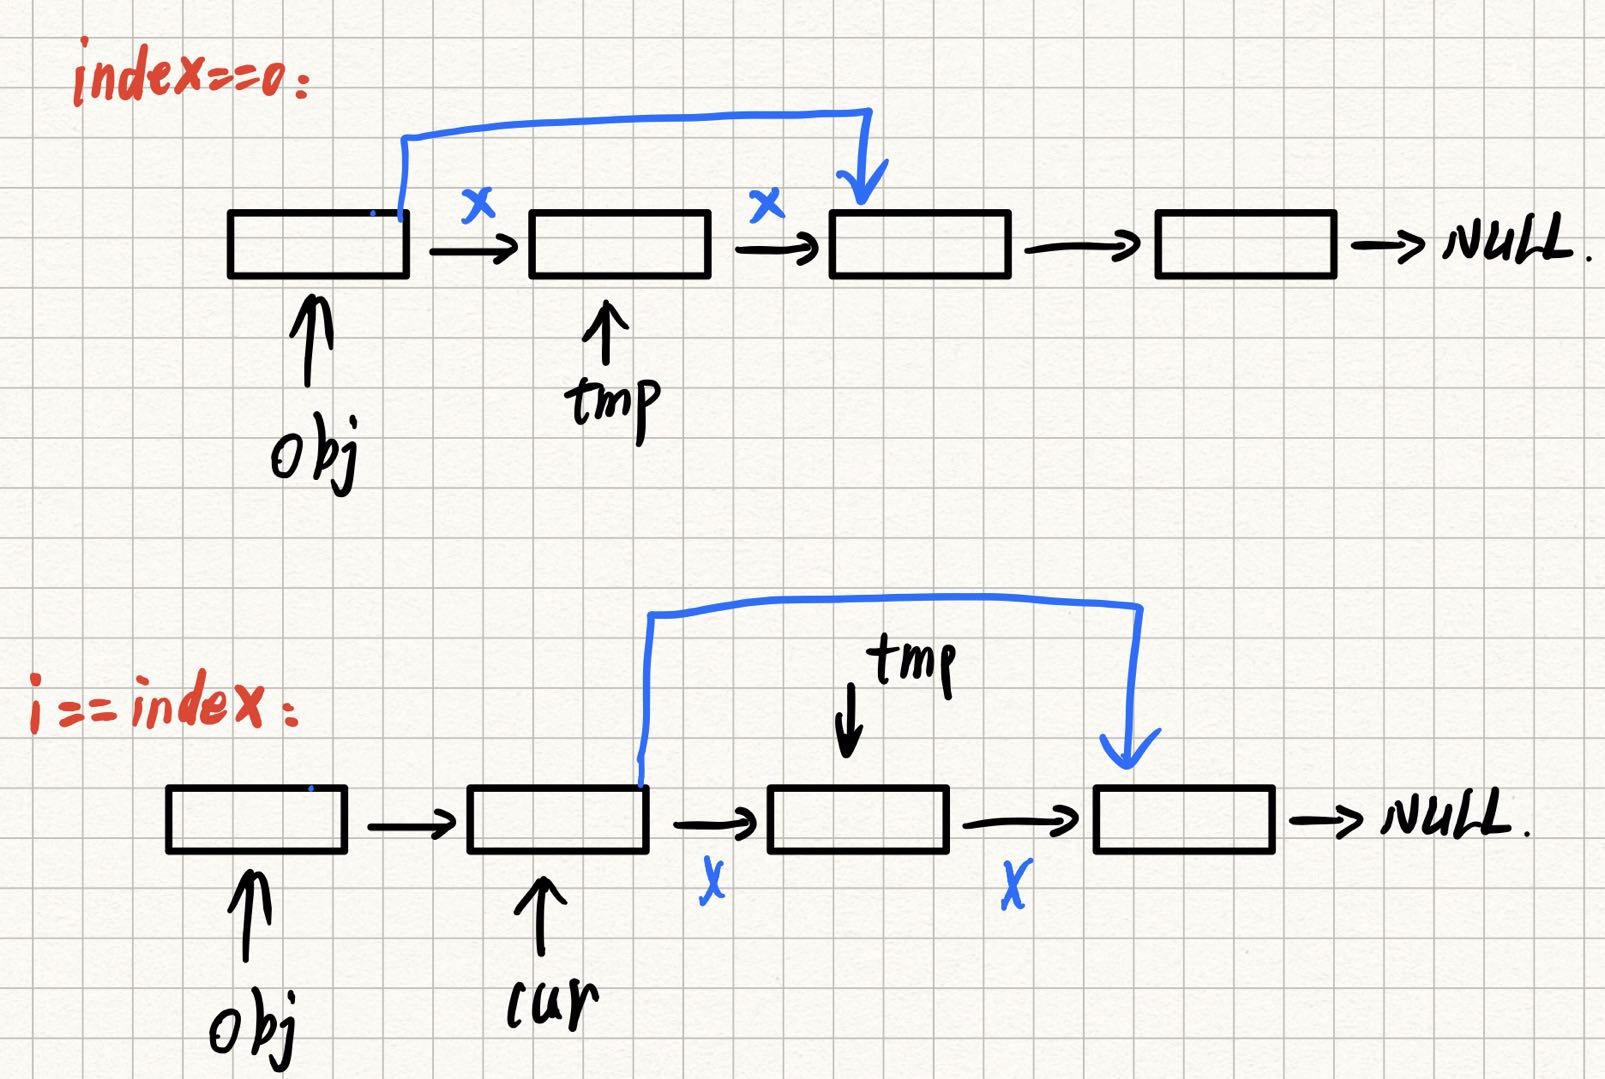 index==0:
X X
NULL.
tmp
obj
tmp
i==index:
NULL.
X X
cur
obj